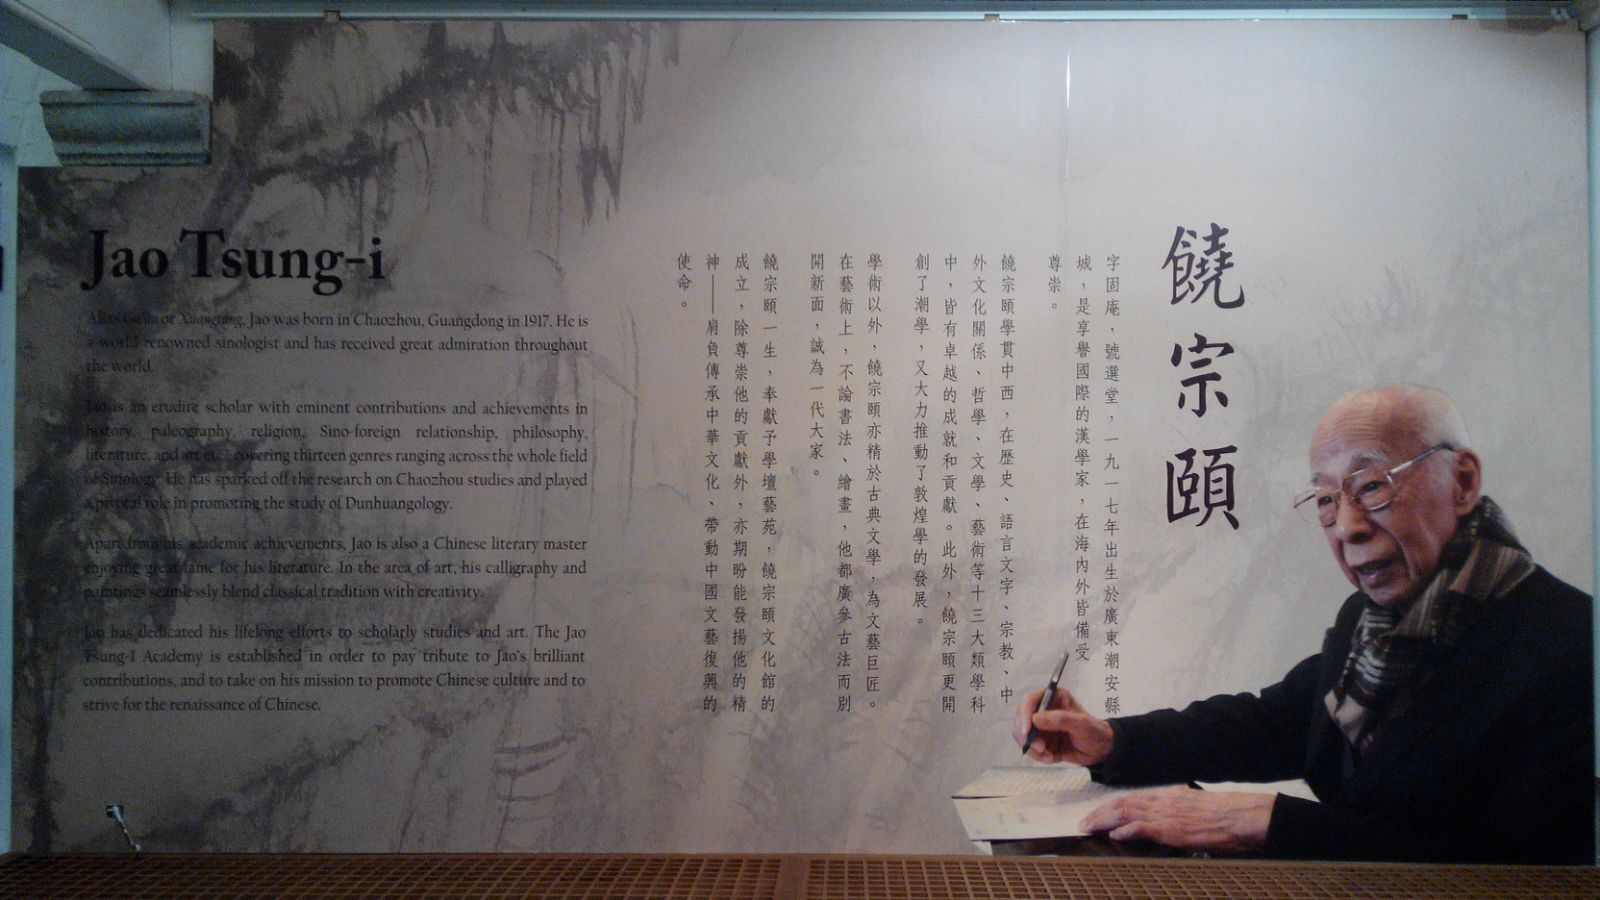 Jao Tsung-i
Alias Gu'an or Xuangtang, Jao was born in Chaozhou, Guangdong in 1917. He is
a world renowned sinologist and has received great admiration throughout
the world.
Jao is an erudite scholar with eminent contributions and achievements in
history, paleography, religion, Sino-foreign relationship, philosophy,
literature, and art etc., covering thirteen genres ranging across the whole field
of Sinology. He has sparked off the research on Chaozhou studies and played
a pivotal role in promoting the study of Dunhuangology.
Apart from his academic achievements, Jao is also a Chinese literary master
enjoying great fame for his literature. In the area of art, his calligraphy and
paintings seamlessly blend classical tradition with creativity.
Jao has dedicated his lifelong efforts to scholarly studies and art. The Jao
Tsung-I Academy is established in order to pay tribute to Jao's brilliant
contributions, and to take on his mission to promote Chinese culture and to
strive for the renaissance of Chinese.
饒宗頤
字固庵，號選堂，一九一七年出生於廣東潮安縣
城，是享譽國際的漢學家，在海內外皆備受
尊崇。
饒宗頤學貫中西，在歷史、語言文字、宗教、中
外文化關係、哲學、文學、藝術等十三大類學科
中，皆有卓越的成就和貢獻。此外，饒宗頤更開
創了潮學，又大力推動了敦煌學的發展。
學術以外，饒宗頤亦精於古典文學，為文藝巨匠。
在藝術上，不論書法、繪畫，他都廣參古法而別
開新面，誠為一代大家。
饒宗頤一生，奉獻予學壇藝苑，饒宗頤文化館的
成立，除尊崇他的貢獻外，亦期盼能發揚他的精
神——肩負傳承中華文化、帶動中國文藝復興的
使命。